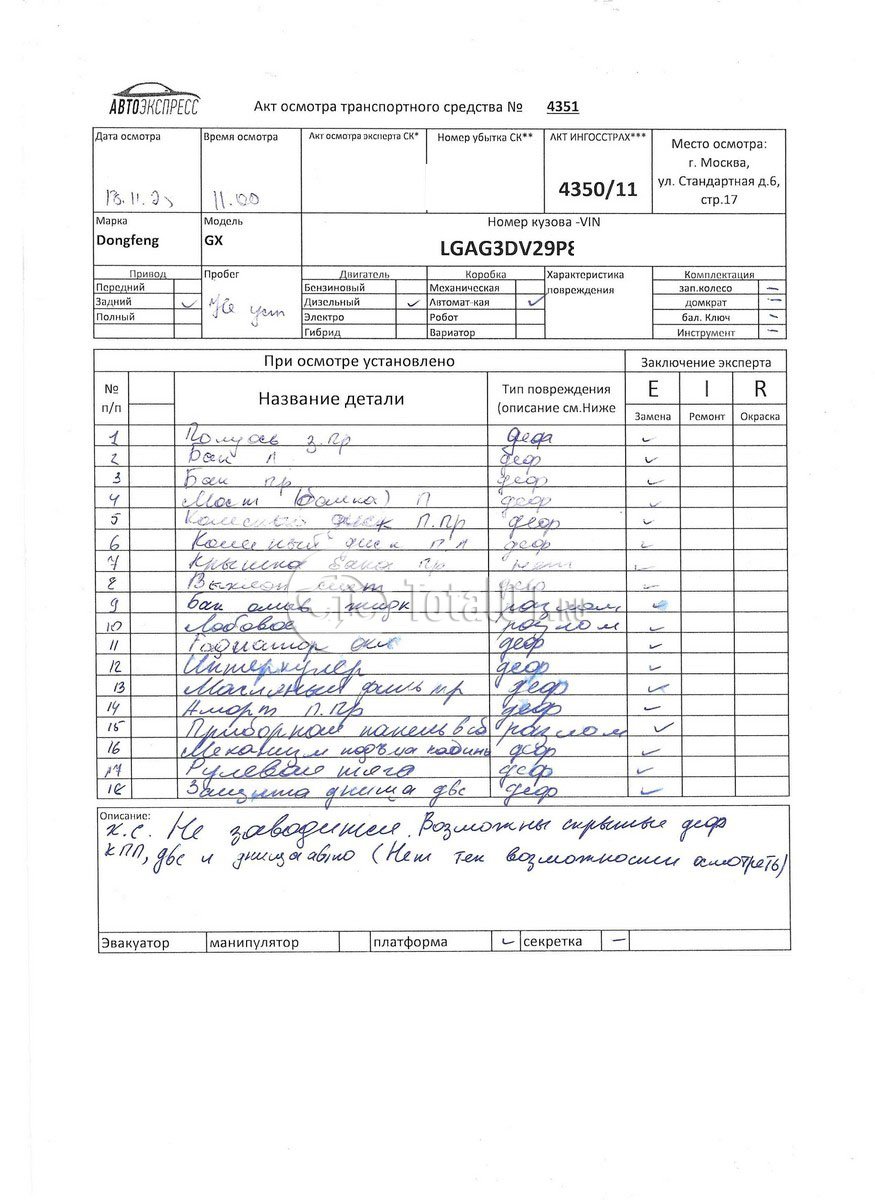 АВТОЭКСПРЕСС
Акт осмотра транспортного средства № 4351
Дата осмотра Время осмотра Акт осмотра эксперта СК* Номер убытка СК** АКТ ИНГОССТРАХ*** Место осмотра:
г. Москва,
4350/11 ул. Стандартная д.6,
11.00 стр.17
Марка Модель Номер кузова -VIN
Dongfeng GX LGAG3DV29P
Привод Пробег Двигатель Коробка Характеристика Комплектация
Передний Бензиновый Механическая повреждения зап.колесо —
Задний ✓ Не уст Дизельный ✓ Автомат-кая ✓ домкрат —
Полный Электро Робот бал. Ключ -
Гибрид Вариатор Инструмент -
При осмотре установлено Заключение эксперта
№ Название детали Тип повреждения E I R
п/п (описание см.Ниже Замена Ремонт Окраска
1 Полуось з.пр деф ✓
2 Бак л деф ✓
3 Бак пр деф ✓
4 Мост (балка) П деф ✓
5 Колесный диск П.Пр деф ✓
6 диск П Л деф ✓
7 Крышка бака пр ✓
8 Выхлоп сист деф ✓
9 Бак омыв жидк разлом ✓
10 Лобовое разлом ✓
11 Радиатор деф ✓
12 Интеркулер деф ✓
13 Масляный фильтр деф ✓
14 Аморт П.Пр деф ✓
15 Приборная панель в сб разлом ✓
16 Механизм подъма кабины деф ✓
17 Рулевая тяга деф ✓
18 Защита днища двс деф ✓
Описание:
К.С. Не заводится. Возможны скрытые деф
КПП, двс и днища авто (Нет тех возможности осмотреть)
Эвакуатор манипулятор платформа ✓ секретка —
TotalDTP.RU